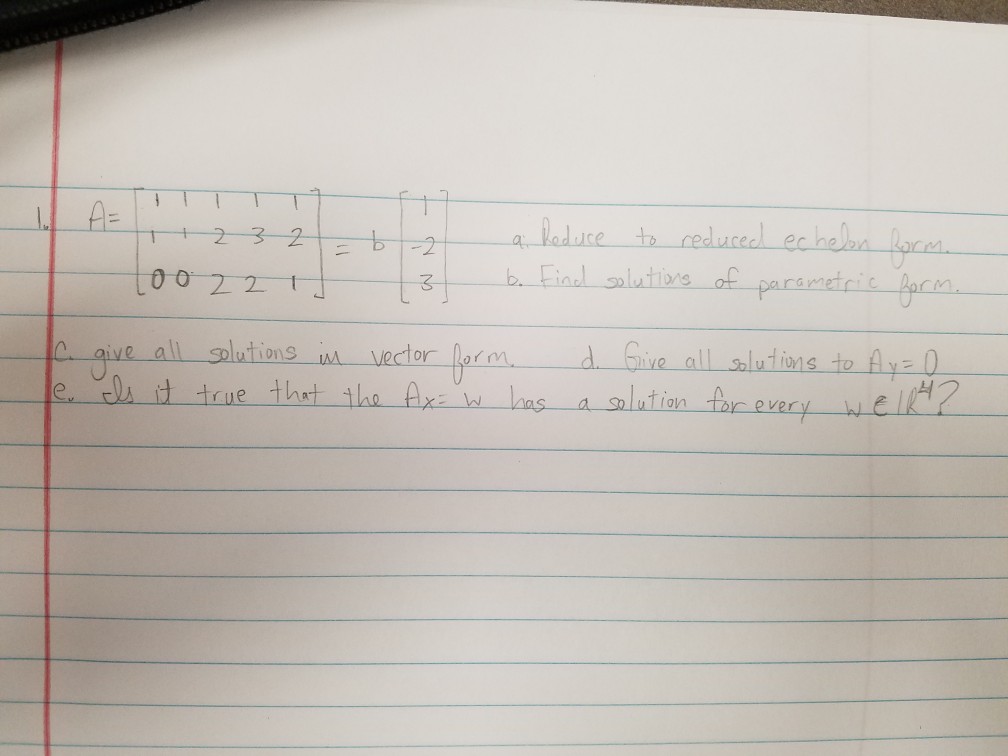 1. A = [ 1 1 1 1 1
1 1 2 3 2
0 0 2 2 1 ] = b [ 1
-2
3 ]
a. Reduce to reduced echelon form.
b. Find solutions of parametric form.
c. give all solutions in vector form. d. Give all solutions to Ay = 0
e. Is it true that the Ax = w has a solution for every w ∈ ℝ⁴?